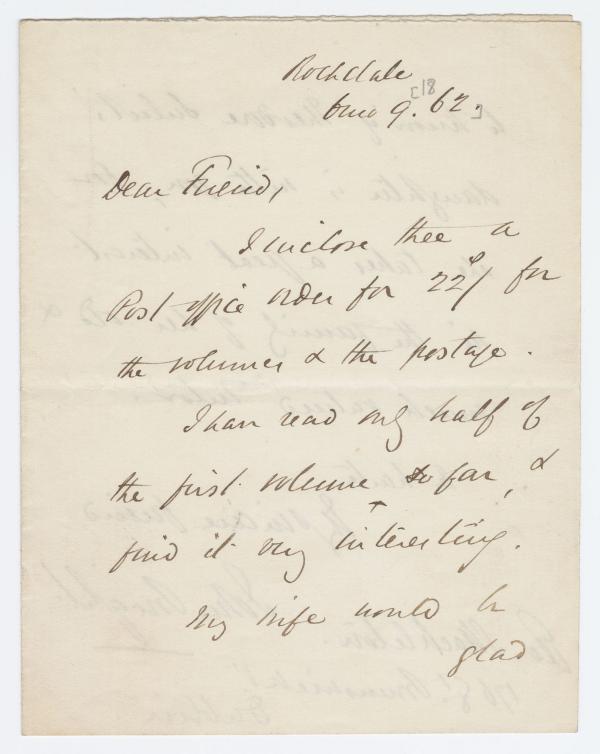 Rochdale
June 9. [18]62.
Dear Friend,
I inclose thee a
Post office order for 22/ for
the volumes & the postage.
I have read only half of
the first volume so far, &
find it very interesting.
My wife would be
glad